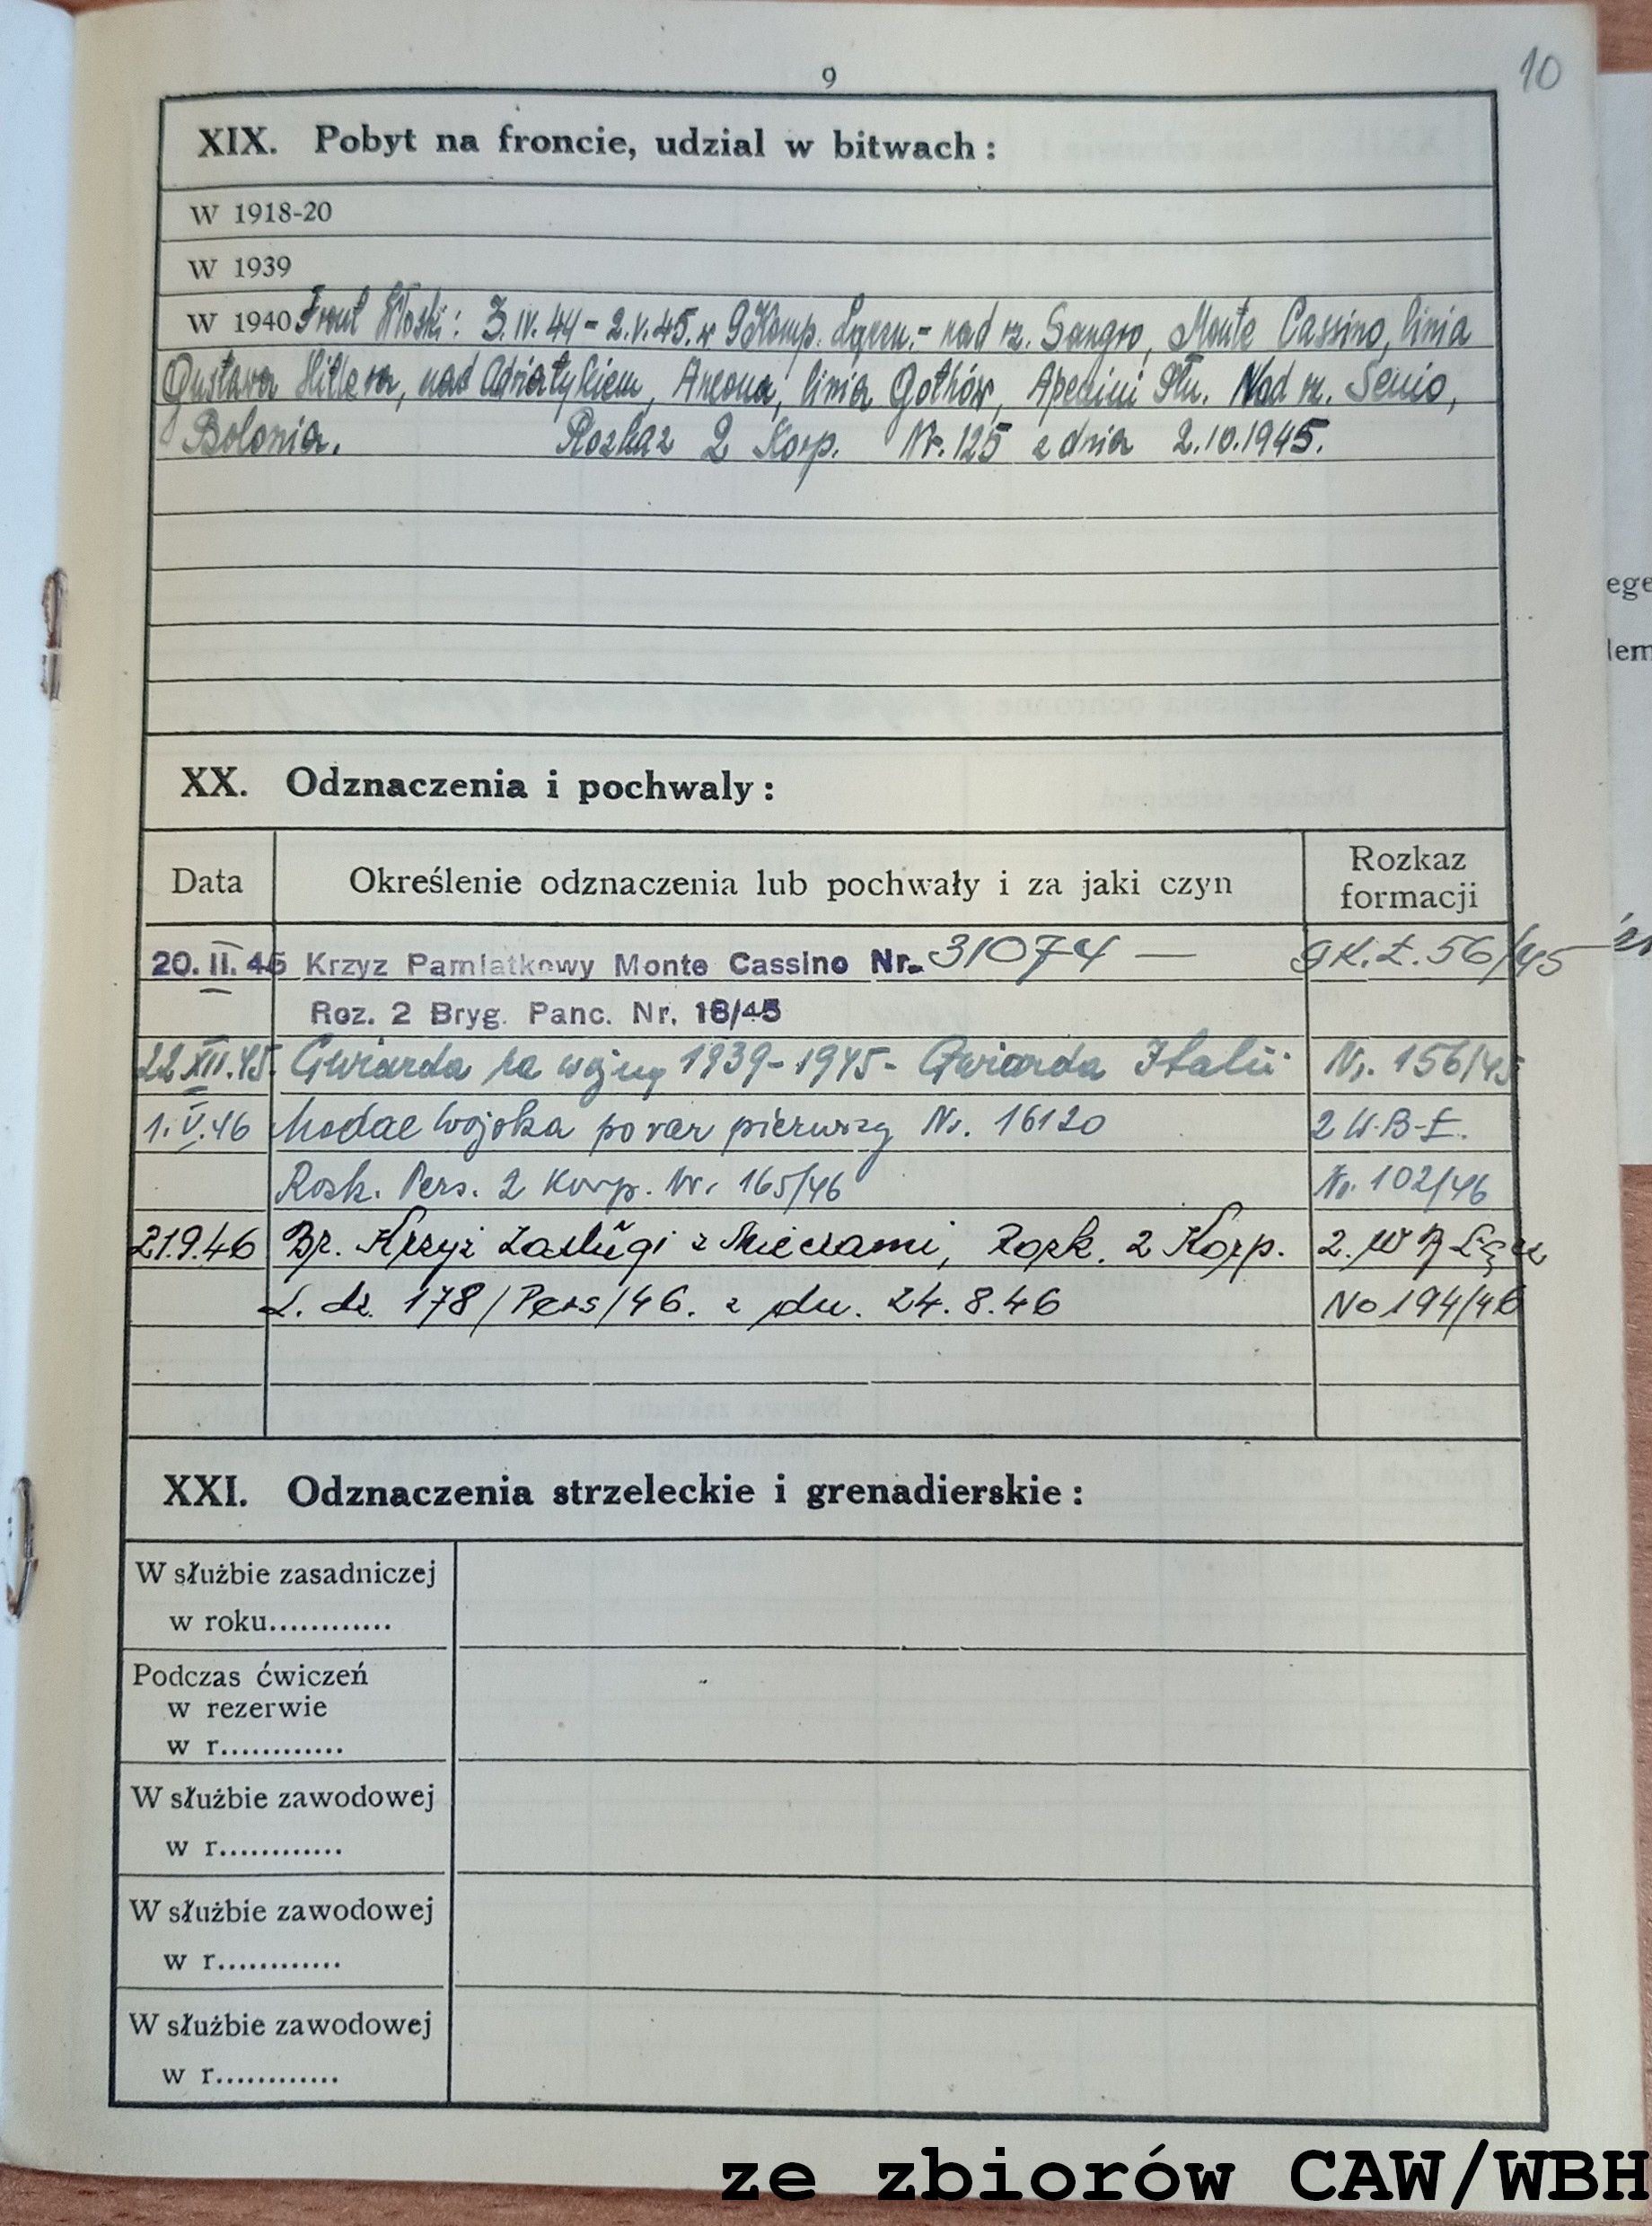 9
10
XIX. Pobyt na froncie, udzial w bitwach :
W 1918-20
W 1939
W 1940 Front Włoski: 3.IV.44 - 2.V.45. w 9 Komp. Łączn. - nad rz. Sangro, Monte Cassino, linia
Gustawa Hitlera, nad Adriatykiem, Ancona, linia Gothów, Apenini Płn. Nad rz. Senio,
Bolonia. Rozkaz 2 Korp. Nr. 125 z dnia 2.10.1945.
XX. Odznaczenia i pochwaly :
Data Określenie odznaczenia lub pochwały i za jaki czyn Rozkaz formacji
20. II. 45 Krzyz Pamiatkowy Monte Cassino Nr. 31074 — 9 K.Ł. 56/45
Roz. 2 Bryg. Panc. Nr. 18/45
22 XII.45. Gwiazda za wojnę 1939-1945 - Gwiazda Italii Nr. 156/45
1.V.46 Medal Wojska po raz pierwszy Nr. 16120 2 W.B.Ł.
Rozk. Pers. 2 Korp. Nr. 165/46 Nr. 102/46
21.9.46 Br. Krzyż Zasługi z Mieczami, Rozk. 2 Korp. 2. W B Łącz
L. dz. 178/Pers/46. z dn. 24.8.46 No 194/46
XXI. Odznaczenia strzeleckie i grenadierskie :
W służbie zasadniczej
w roku............
Podczas ćwiczeń
w rezerwie
w r............
W służbie zawodowej
w r............
W służbie zawodowej
w r............
W służbie zawodowej
w r............
ege
lem
ze zbiorów CAW/WBH